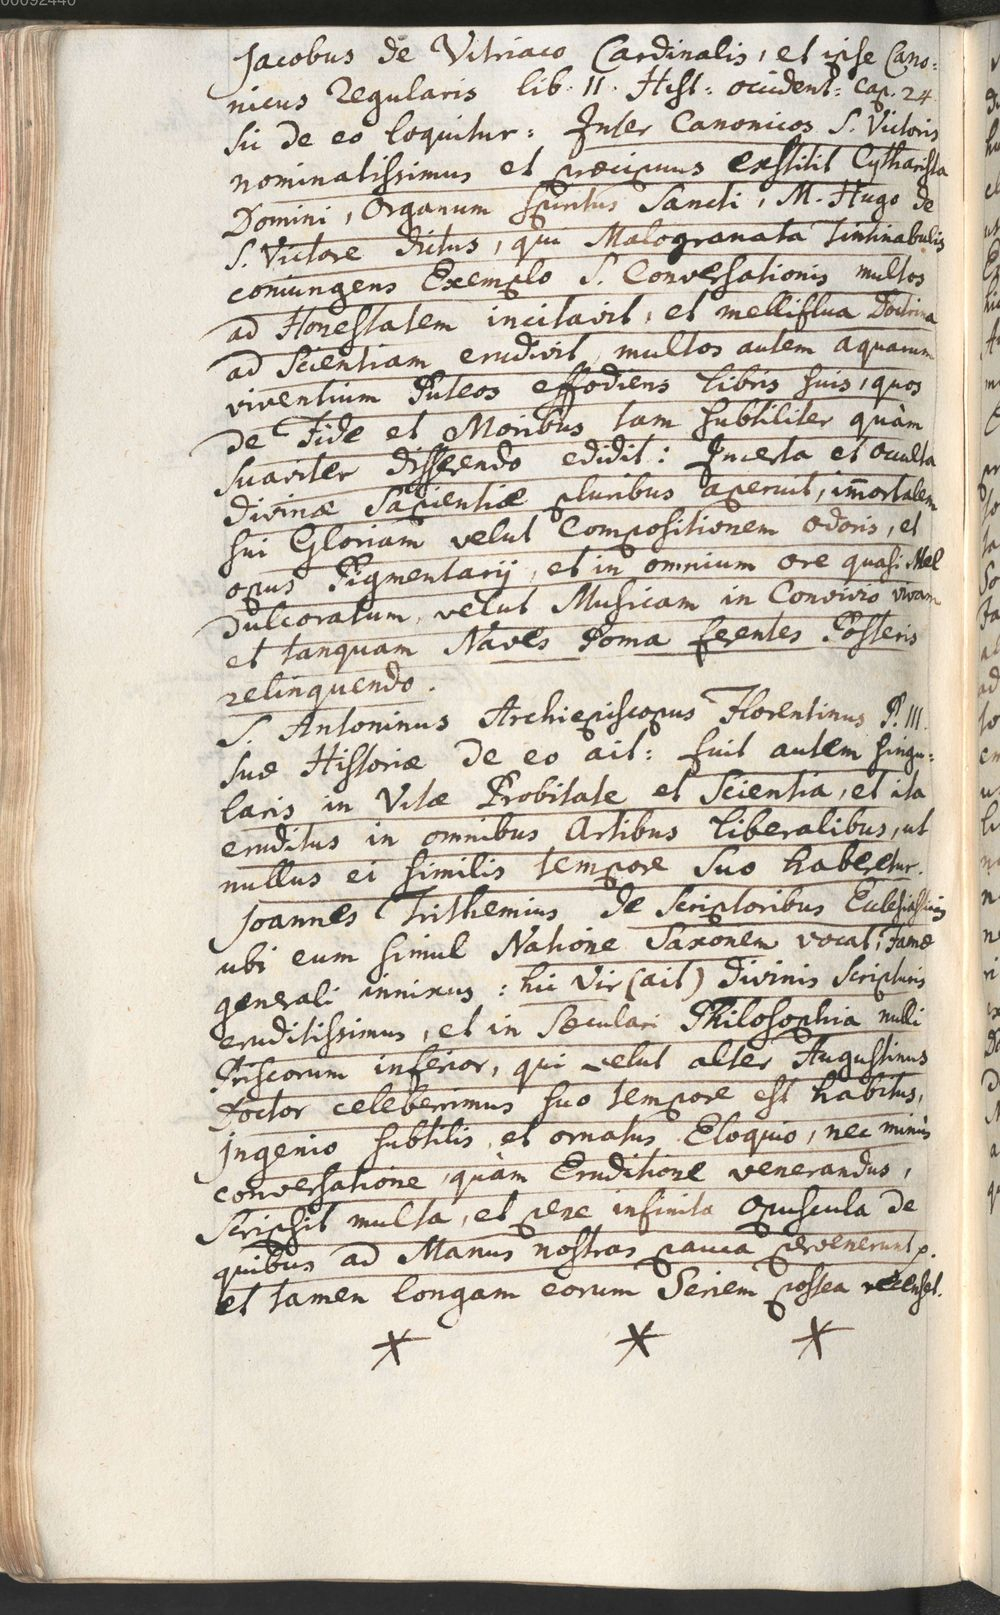 00092440
Jacobus de Vitriaco Cardinalis, et ipse Cano:
nicus Regularis lib. II. Hist: occident: Cap. 24
sic de eo loquitur: Inter Canonicos S. Victoris
nominatissimus et præcipuus exstitit Cytharista
Domini, Organum Spiritus Sancti, M. Hugo de
S. Victore dictus, qui Malogranata tintinabulis
coniungens Exemplo S. Conversationis multos
ad Honestatem incitavit, et melliflua Doctrina
ad Scientiam erudivit, multos autem aquarum
viventium Puteos effodiens libris suis, quos
de Fide et Moribus tam subtiliter quàm
suaviter disserendo edidit: Incerta et occulta
divinæ Sapientiæ pluribus aperuit, im̄ortalem
sui Gloriam velut Compositionem odoris, et
opus Pigmentarij, et in omnium ore quasi Mel
dulcoratum, velut Musicam in Convivio vivam
et tanquam Naves Poma ferentes Posteris
relinquendo.
S. Antoninus Archiepiscopus Florentinus P. III.
suæ Historiæ de eo ait: fuit autem singu:
laris in Vitæ Probitate et Scientia, et ita
eruditus in omnibus Artibus liberalibus, ut
nullus ei similis tempore suo haberetur.
Joannes Trithemius de Scriptoribus Ecclesiasticis
ubi eum simul Natione Saxonem vocat, Famæ
generali innixus: hic Vir (ait) divinis Scripturis
eruditissimus, et in Sæculari Philosophia nulli
Priscorum inferior, qui velut alter Augustinus
Doctor celeberrimus suo tempore est habitus,
Ingenio subtilis, et ornatus Eloquio, nec minùs
conversatione, quàm Eruditione venerandus,
Scripsit multa, et pene infinita opuscula de
quibus ad Manus nostras pauca pervenerunt p.
et tamen longam eorum Seriem postea recenset.